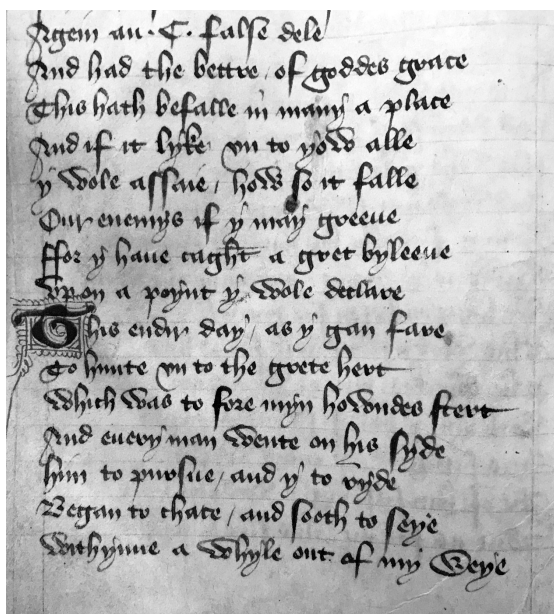 Agein an · C · false dele
And had the bettre / of goddes grace
This hath befalle in many a place
And if it lyke vn to yow alle
y wole assaie / how so it falle
Our enemys if y may greeve
ffor y haue caght a gret byleeve
vpon a poynt y wole declare
This endir day / as y gan fare
To hunte vn to the grete hert
Which was to fore myn howndes stert
And euery man wente on his syde
him to pursue / and y to ryde
Began to chace / and sooth to seye
withynne a whyle out of my weye